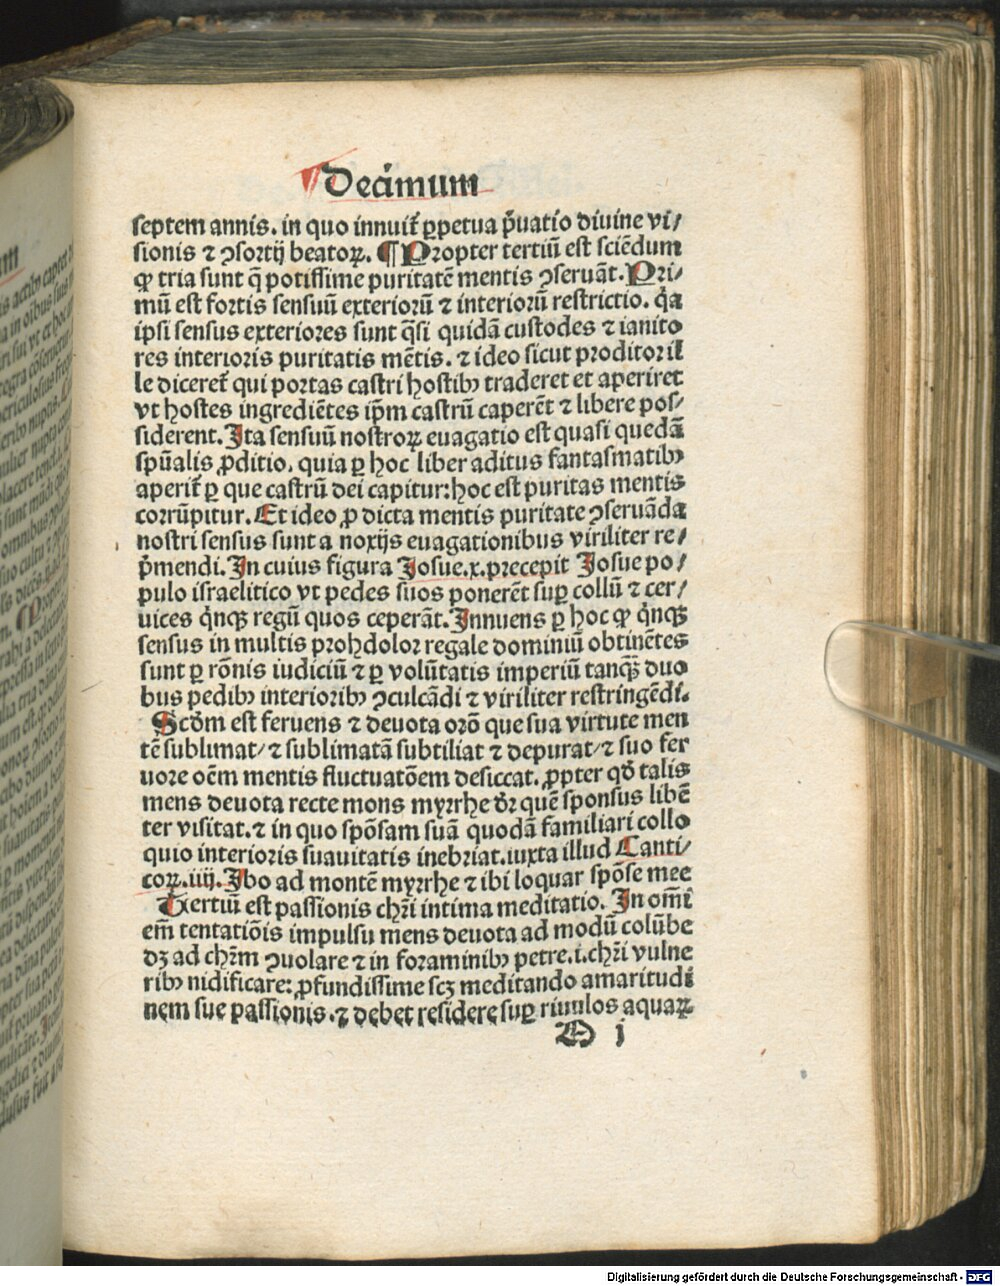 Decimum
septem annis. in quo innuit᷑ ꝑpetua p̃uatio diuine vi/
sionis ⁊ ꝯsortij beatoꝝ. ¶ Propter tertiũ est sciẽdum
ꝙ tria sunt q̃ potissime puritatẽ mentis ꝯseruãt. Pri/
mũ est fortis sensuũ exteriorũ ⁊ interiorũ restrictio. q̇a
ipsi sensus exteriores sunt q̃si quidã custodes ⁊ ianito
res interioris puritatis mẽtis. ⁊ ideo sicut proditor il
le diceret᷑ qui portas castri hostibꝰ traderet et aperiret
vt hostes ingrediẽtes ip̃m castrũ caperẽt ⁊ libere pos/
siderent. Ita sensuũ nostroꝝ euagatio est quasi quedã
spũalis ꝓditio. quia ꝑ hoc liber aditus fantasmatibꝰ
aperit᷑ ꝑ que castrũ dei capitur: hoc est puritas mentis
corrũpitur. Et ideo ꝓ dicta mentis puritate ꝯseruãda
nostri sensus sunt a noxijs euagationibus viriliter re/
p̃mendi. In cuius figura Josue.x. precepit Josue po/
pulo israelitico vt pedes suos ponerẽt suꝑ collũ ⁊ cer/
uices q̇nqꝫ regũ quos ceperãt. Innuens ꝑ hoc ꝙ q̇nqꝫ
sensus in multis prohdolor regale dominiũ obtinẽtes
sunt ꝑ rõnis iudiciũ ⁊ ꝑ volũtatis imperiũ tanqꝫ̃ duo
bus pedibꝰ interioribꝰ ꝯculcãdi ⁊ viriliter restringẽdi.
Scđm est feruens ⁊ deuota orõ que sua virtute men
tẽ sublimat/ ⁊ sublimatã subtiliat ⁊ depurat/ ⁊ suo fer
uore oẽm mentis fluctuatõem desiccat. ꝓpter qđ talis
mens deuota recte mons myrrhe đr quẽ sponsus libẽ
ter visitat. ⁊ in quo spõsam suã quodã familiari collo
quio interioris suauitatis inebriat. iuxta illud Canti/
coꝝ.iiij. Ibo ad montẽ myrrhe ⁊ ibi loquar spõse mee
Tertiũ est passionis chr̃i intima meditatio. In om̃i
em̃ tentatiõis impulsu mens deuota ad modũ colũbe
dꝫ ad chr̃m ꝯuolare ⁊ in foraminibꝰ petre.i.chr̃i vulne
ribꝰ nidificare: ꝓfundissime scꝫ meditando amaritudi
nem sue passionis. ⁊ debet residere suꝑ riuulos aquaꝝ
O j
Digitalisierung gefördert durch die Deutsche Forschungsgemeinschaft - DFG